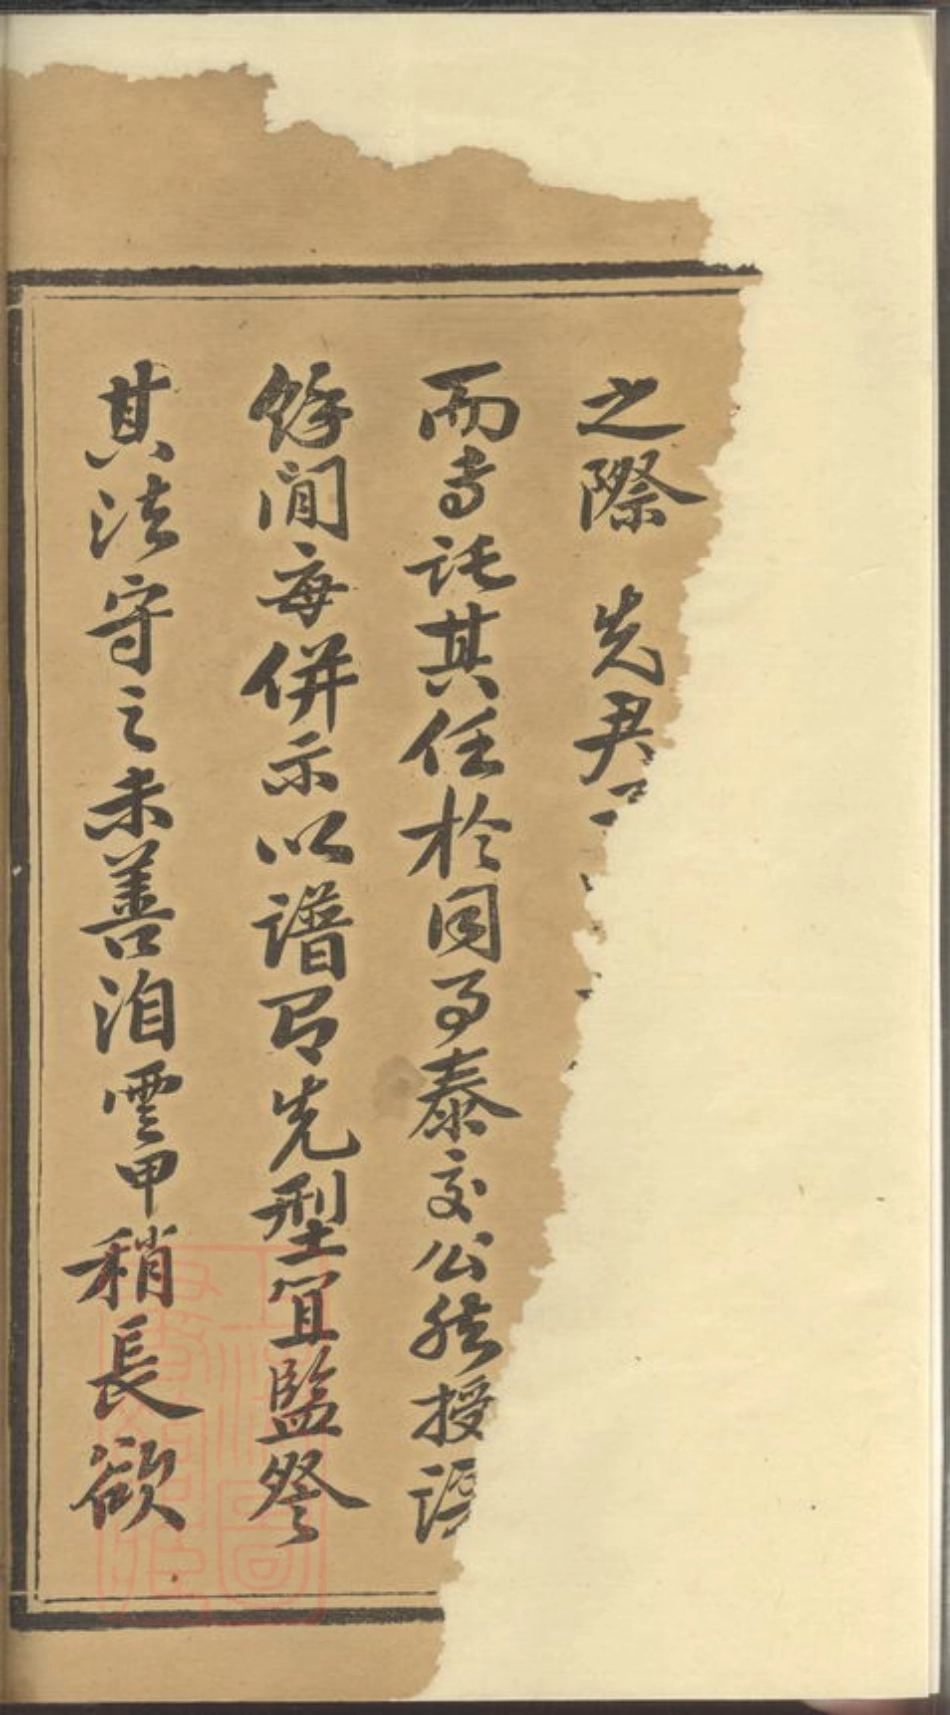 之際 先君
而专託其任於同事泰交公然授
餘間每併示以譜司先型宜監祭
其法守之未善洎雲甲稍長欲